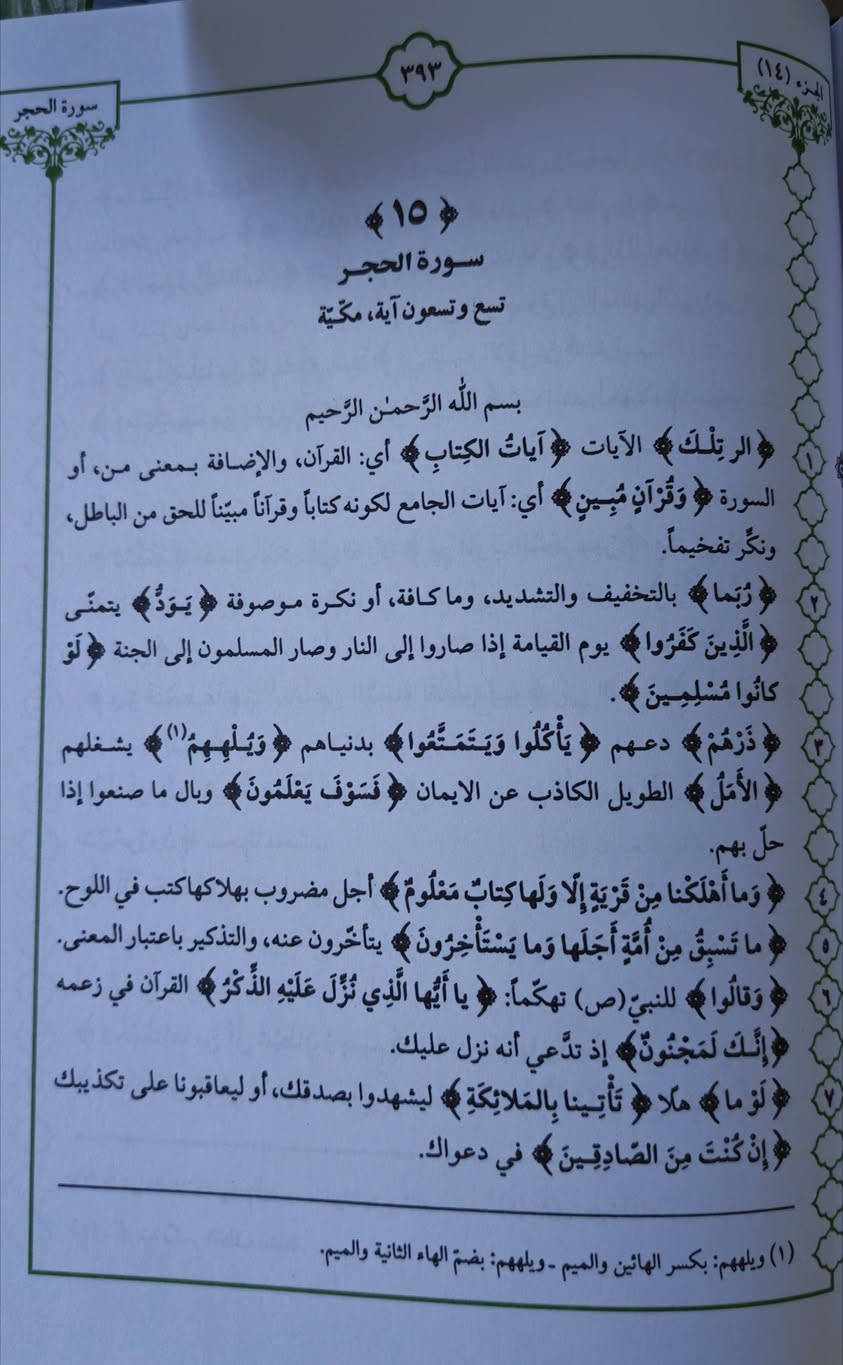 الجزء (١٤)
٣٩٣
سورة الحجر
﴿ ١٥ ﴾
سورة الحجر
تسع وتسعون آية، مكّيّة
بسم الله الرَّحمـٰن الرَّحيم
١ ﴿الر تِلْكَ﴾ الآيات ﴿آياتُ الكِتابِ﴾ أي: القرآن، والإضافة بمعنى من، أو
السورة ﴿وَقُرْآنٍ مُبِينٍ﴾ أي: آيات الجامع لكونه كتاباً وقرآناً مبيّناً للحق من الباطل،
ونكّر تفخيماً.
٢ ﴿رُبَما﴾ بالتخفيف والتشديد، وما كافة، أو نكرة موصوفة ﴿يَوَدُّ﴾ يتمنّى
﴿الَّذِينَ كَفَرُوا﴾ يوم القيامة إذا صاروا إلى النار وصار المسلمون إلى الجنة ﴿لَوْ
كانُوا مُسْلِمِينَ﴾.
٣ ﴿ذَرْهُمْ﴾ دعهم ﴿يَأْكُلُوا وَيَتَمَتَّعُوا﴾ بدنياهم ﴿وَيُلْهِهِمُ(١)﴾ يشغلهم
﴿الأَمَلُ﴾ الطويل الكاذب عن الايمان ﴿فَسَوْفَ يَعْلَمُونَ﴾ وبال ما صنعوا إذا
حلّ بهم.
٤ ﴿وَما أَهْلَكْنا مِنْ قَرْيَةٍ إِلّا وَلَها كِتابٌ مَعْلُومٌ﴾ أجل مضروب بهلاكها كتب في اللوح.
٥ ﴿ما تَسْبِقُ مِنْ أُمَّةٍ أَجَلَها وَما يَسْتَأْخِرُونَ﴾ يتأخّرون عنه، والتذكير باعتبار المعنى.
٦ ﴿وَقالُوا﴾ للنبيّ (ص) تهكّماً: ﴿يا أَيُّها الَّذِي نُزِّلَ عَلَيْهِ الذِّكْرُ﴾ القرآن في زعمه
﴿إِنَّكَ لَمَجْنُونٌ﴾ إذ تدَّعي أنه نزل عليك.
٧ ﴿لَوْ ما﴾ هلّا ﴿تَأْتِينا بِالمَلائِكَةِ﴾ ليشهدوا بصدقك، أو ليعاقبونا على تكذيبك
﴿إِنْ كُنْتَ مِنَ الصّادِقِينَ﴾ في دعواك.
(١) ويلههم: بكسر الهائين والميم ـ ويلههم: بضمّ الهاء الثانية والميم.